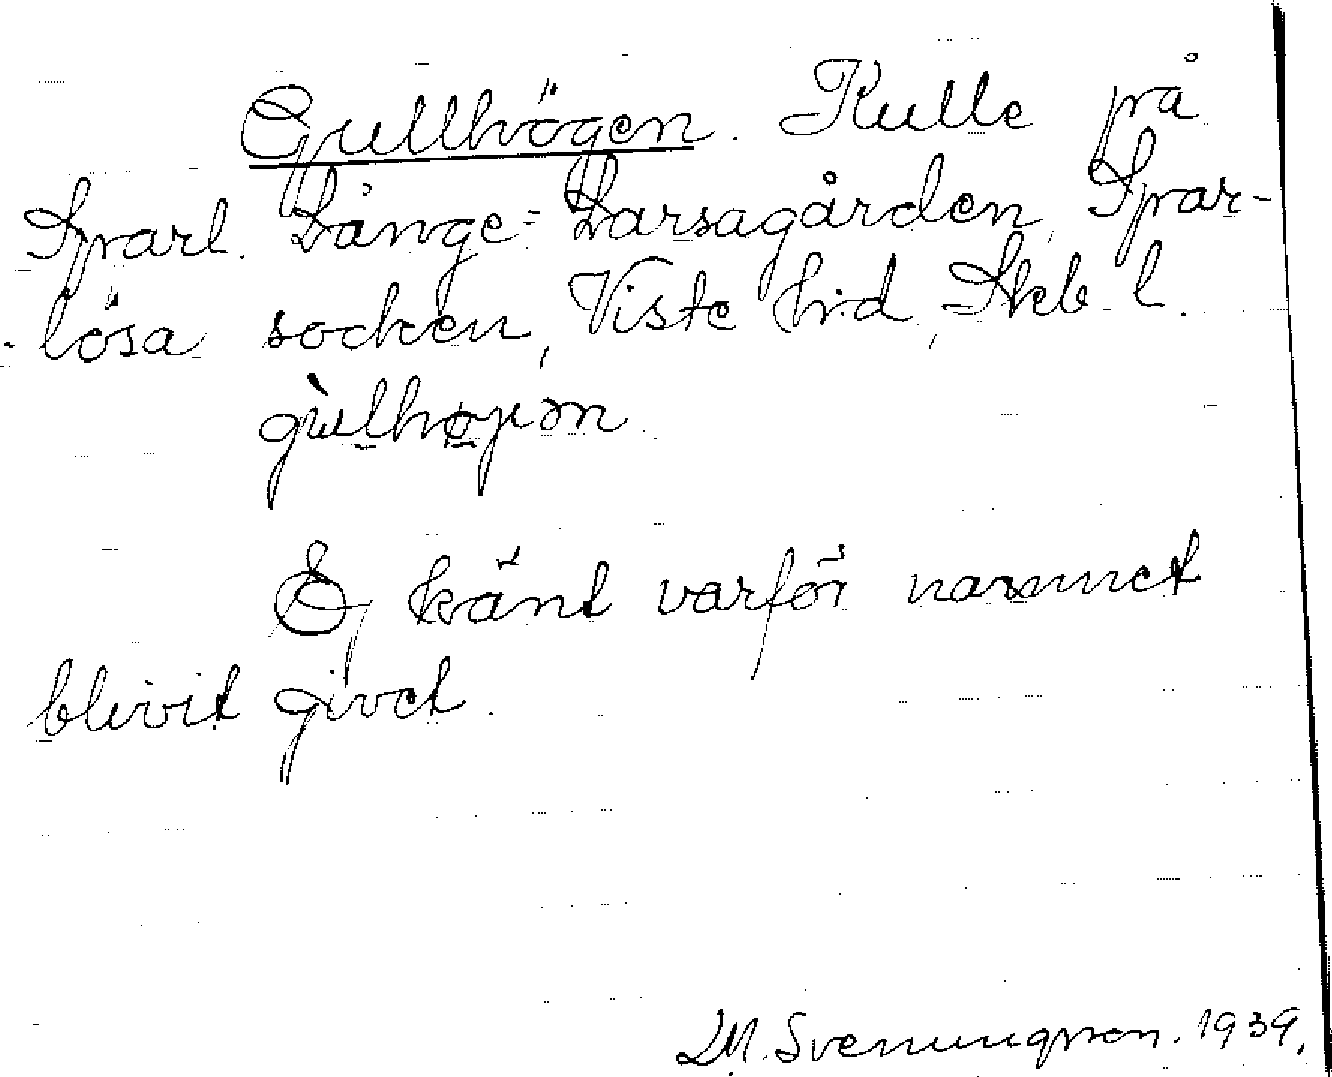 Gullhögen. Kulle på
Sparl. Långe-Larsagården, Spar-
lösa socken, Viste hrd, Skb l.
gùlhøɡən.
Ej känt varför namnet
blivit givet.
M. Svenungsson. 1939.